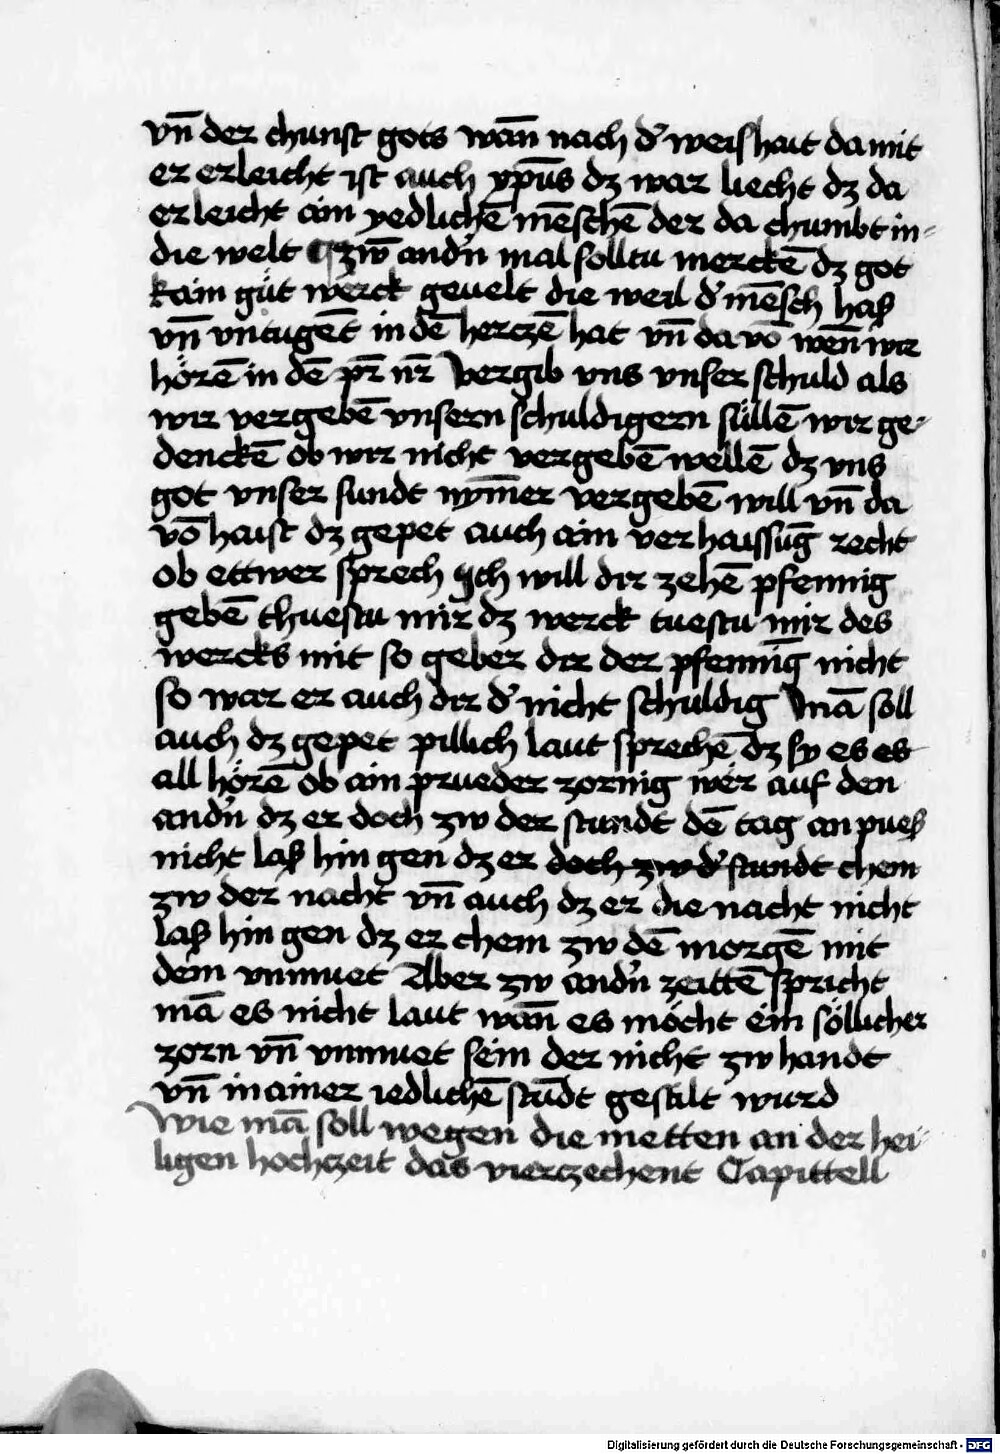 vn̄ der chunst gots wān nach d' weishait da mit
er erleicht ist auch xp̄us dz war liecht dz da
erleicht ain yedlichē mēschē der da chumbt in-
die welt ¶ zw̄ and'n mal solltu merckē dz got
kain gůt werck geuelt die weil d' mēsch haß
vn̄ vntugēt in dē herczē hat vn̄ da vō wēn wir
hörē in dē pr̄ nr̄ Vergib vns vnser schuld als
wir vergebē vnsern schuldigern süllē wir ge-
denckē ob wir nicht vergebē wellē dz vns
got vnser sundt nym̄er vergebē will vn̄ da
vō haist dz gepet auch ain verhaissūg recht
ob ettwer sprech Ich will dir zehē pfennig
gebē thuestu mir dz werck tuestu mir des
wercks mit so geber dir der pfennīg nicht
so war er auch dir d' nicht schuldig Mā soll
auch dz gepet pillich laut sprechē dz sy es es
all hörē ob ain prueder zornig wër auf den
and'n dz er doch zw der stundt dē tag an pueß
nicht laß hin gen dz er doch zw d' stundt chem
zw der nacht vn̄ auch dz er die nacht nicht
laß hin gen dz er chem zw dē morgē mit
dem vnmuet Aber zw and'n zeittē spricht
mā es nicht laut wān es möcht ein söllicher
zorn vn̄ vnmuet sein der nicht zw handt
vn̄ in ainer iedlichē stūdt gestilt wurd
Wie mā soll wegen die metten an der hei-
ligen hochzeit das vierzechent Capittell
Digitalisierung gefördert durch die Deutsche Forschungsgemeinschaft - DFG